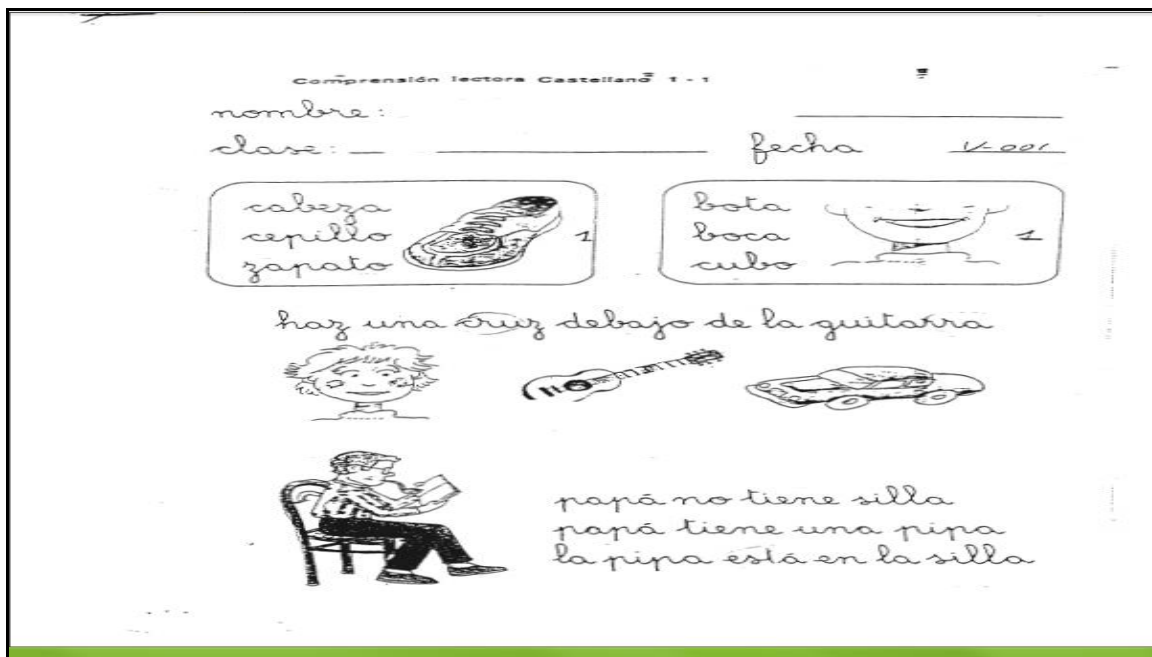 Comprensión lectora Castellano 1 - 1
nombre:
clase: fecha V-001
cabeza
cepillo
zapato
1
bota
boca
cubo
1
haz una cruz debajo de la guitarra
papá no tiene silla
papá tiene una pipa
la pipa está en la silla